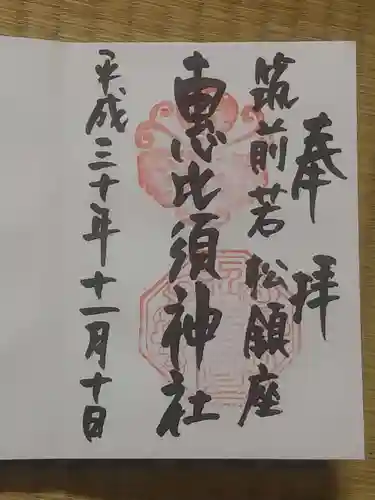 奉拝
筑前若松願座
恵比須神社
平成三十年十一月十日